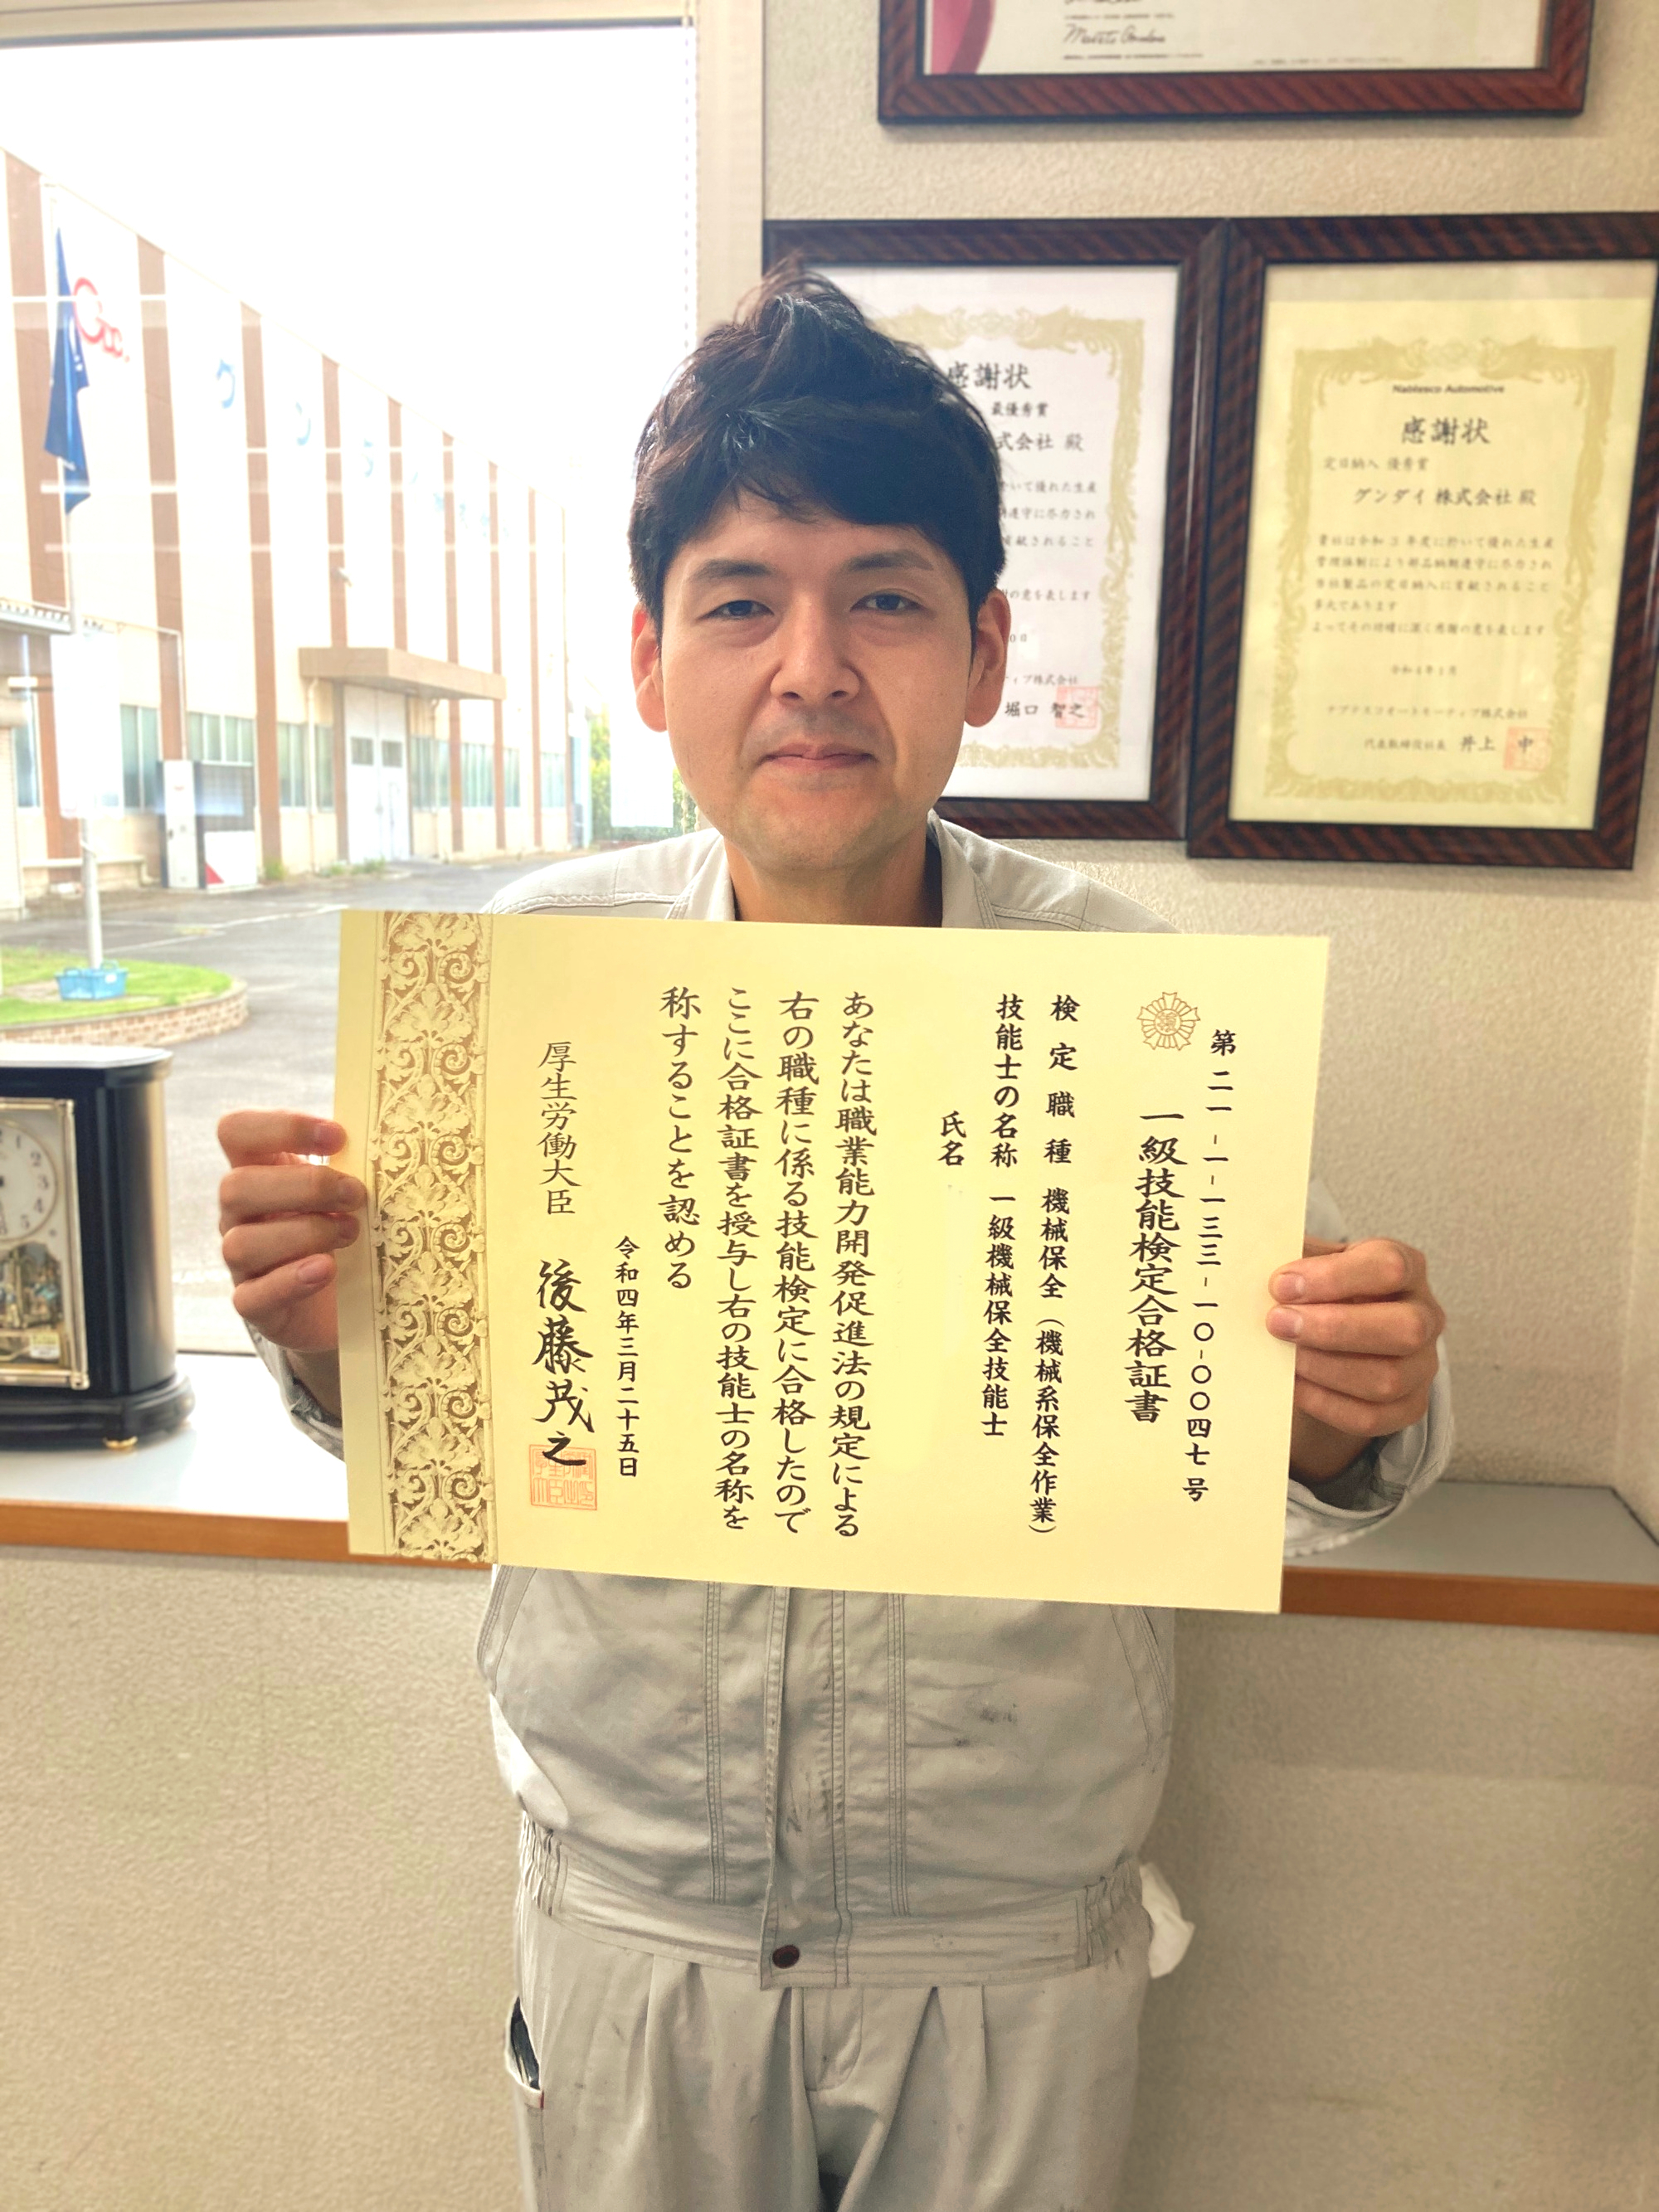 第二一-一-一三三-一〇-〇〇四七号
一級技能検定合格証書
検定職種 機械保全（機械系保全作業）
技能士の名称 一級機械保全技能士
氏名
あなたは職業能力開発促進法の規定による
右の職種に係る技能検定に合格したので
ここに合格証書を授与し右の技能士の名称を
称することを認める
令和四年三月二十五日
厚生労働大臣 後藤茂之
感謝状
最優秀賞
式会社 殿
いて優れた生産
遵守に尽力され
貢献されること
の意を表します
0日
ティブ株式会社
堀口 智之
Nabtesco Automotive
感謝状
定日納入 優秀賞
グンダイ 株式会社 殿
貴社は令和3年度に於いて優れた生産
管理体制により部品納期遵守に尽力され
当社製品の定日納入に貢献されること
多大であります
よってその功績に深く感謝の意を表します
令和4年4月
ナブテスコオートモーティブ株式会社
代表取締役社長 井上 中